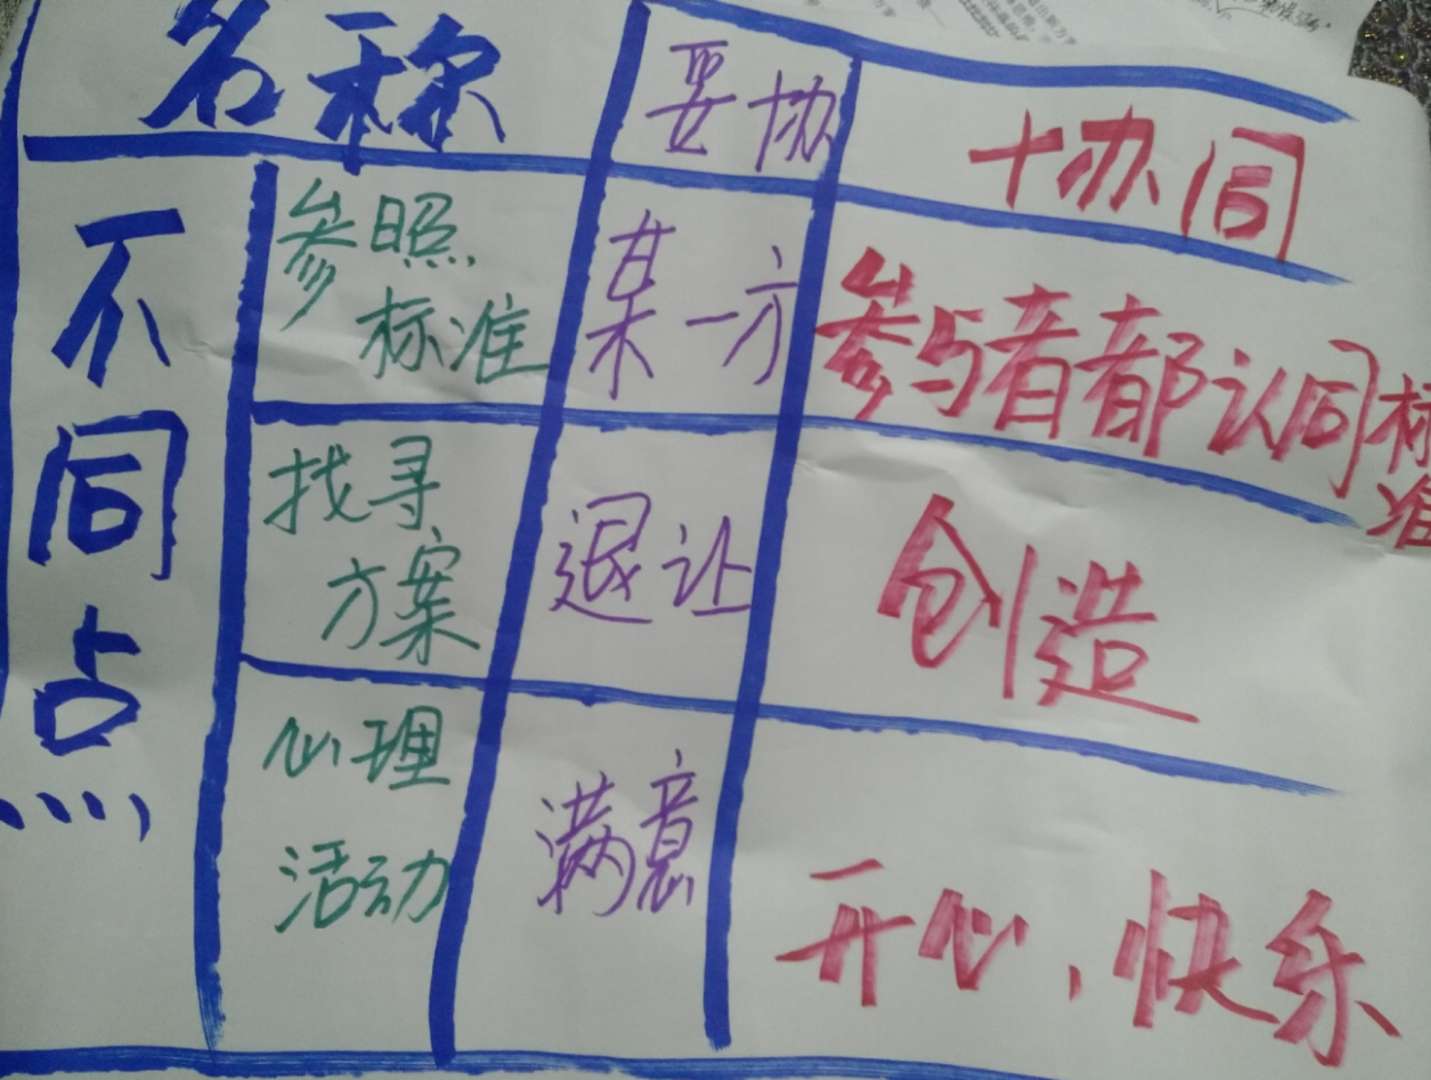 名称 妥协 协同
不同点
参照标准 某一方 参与者都认同标准
找寻方案 退让 创造
心理活动 满意 开心、快乐